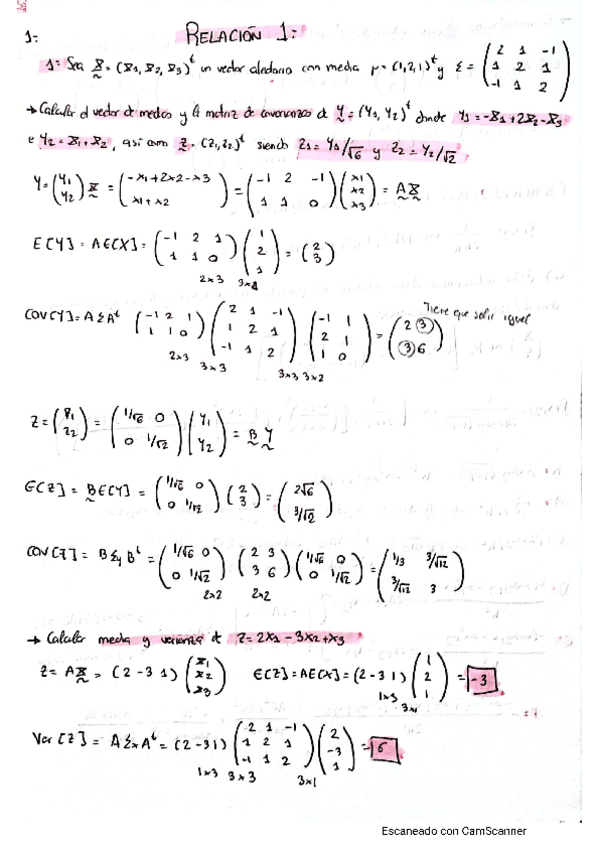 1:
RELACIÓN 1:
1: Sea X = (X1, X2, X3)^t un vector aleatorio con media μ = (1,2,1)^t y Σ = ( 2 1 -1 / 1 2 1 / -1 1 2 )
→ Calcular el vector de medias y la matriz de covarianzas de Y = (Y1, Y2)^t donde Y1 = -X1 + 2X2 - X3
e Y2 = X1 + X2, así como Z = (Z1, Z2)^t siendo Z1 = Y1/√6 y Z2 = Y2/√2
Y = ( Y1 / Y2 ) X = ( -x1+2x2-x3 / x1+x2 ) = ( -1 2 -1 / 1 1 0 ) ( x1 / x2 / x3 ) = AX
E[Y] = AE[X] = ( -1 2 1 / 1 1 0 ) ( 1 / 2 / 1 ) = ( 2 / 3 )
2x3 3x1
Tiene que salir igual
COV[Y] = AΣA^t ( -1 2 1 / 1 1 0 ) ( 2 1 -1 / 1 2 1 / -1 1 2 ) ( -1 1 / 2 1 / 1 0 ) = ( 2 3 / 3 6 )
2x3 3x3 3x3 3x2
Z = ( Z1 / Z2 ) = ( 1/√6 0 / 0 1/√2 ) ( Y1 / Y2 ) = B Y
E[Z] = BE[Y] = ( 1/√6 0 / 0 1/√2 ) ( 2 / 3 ) = ( 2√6 / 3/√2 )
COV[Z] = B Σy B^t = ( 1/√6 0 / 0 1/√2 ) ( 2 3 / 3 6 ) ( 1/√6 0 / 0 1/√2 ) = ( 1/3 3/√12 / 3/√12 3 )
2x2 2x2
→ Calcular media y varianza de Z = 2X1 - 3X2 + X3
Z = AX = (2 -3 1) ( X1 / X2 / X3 ) E[Z] = AE[X] = (2 -3 1) ( 1 / 2 / 1 ) = -3
1x3 3x1
Var[Z] = AΣxA^t = (2 -3 1) ( 2 1 -1 / 1 2 1 / -1 1 2 ) ( 2 / -3 / 1 ) = 6
1x3 3x3 3x1
Escaneado con CamScanner